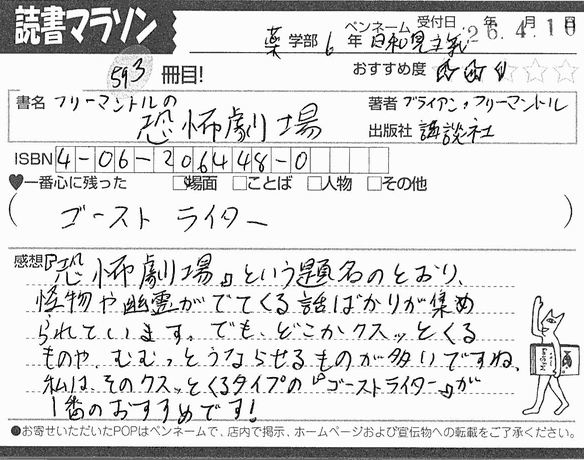 読書マラソン
薬 学部 6 年 ペンネーム 日和見主義 受付日 26.年4.月10日
593 冊目! おすすめ度 ☆☆☆☆☆
書名 フリーマントルの 恐怖劇場
著者 ブライアン・フリーマントル
出版社 講談社
ISBN 4-06-206448-0
♥一番心に残った □場面 □ことば □人物 □その他
( ゴーストライター )
感想『恐怖劇場』という題名のとおり、
怪物や幽霊がでてくる話ばかりが集め
られています。でも、どこかクスッとくる
ものや、むむっとうならせるものが多いですね、
私は、そのクスッとくるタイプの『ゴーストライター』が
1番のおすすめです!
●お寄せいただいたPOPはペンネームで、店内で掲示、ホームページおよび宣伝物への転載をご了承ください。